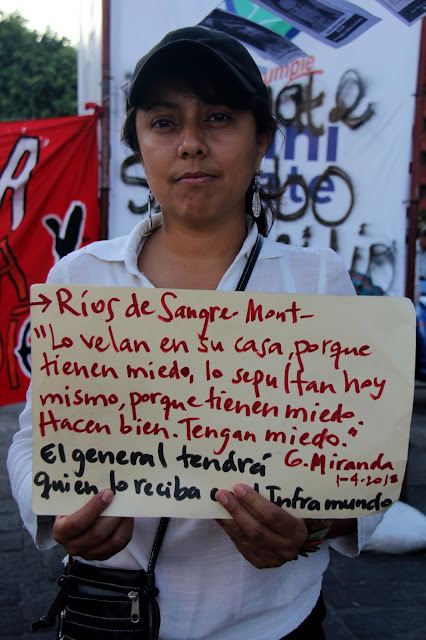 → Ríos de Sangre-Mont-
"Lo velan en su casa, porque
tienen miedo, lo sepultan hoy
mismo, porque tienen miedo.
Hacen bien. Tengan miedo."
G. Miranda
1-4-2018
El general tendrá
quien lo reciba en el Inframundo
umple